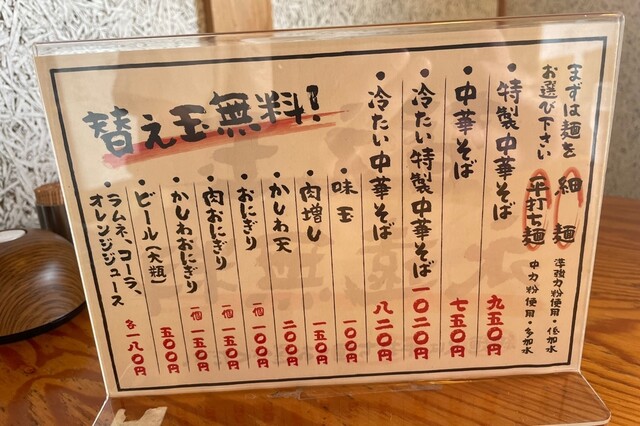 まずは麺を
お選び下さい
細麺
準強力粉使用・低加水
平打ち麺
中力粉使用・多加水
・特製中華そば 九五〇円
・中華そば 七五〇円
・冷たい特製中華そば 一〇二〇円
・冷たい中華そば 八二〇円
替え玉無料!
・味玉 一〇〇円
・肉増し 一五〇円
・かしわ天 二〇〇円
・おにぎり 一個 一〇〇円
・肉おにぎり 一個 一五〇円
・かしわおにぎり 一個 一五〇円
・ビール(大瓶) 五〇〇円
・ラムネ、コーラ、
オレンジジュース 各一八〇円